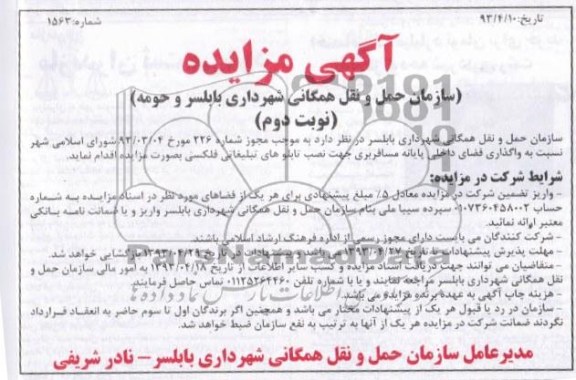 تاریخ: ۹۳/۴/۱۰
شماره: ۱۵۶۳
آگهی مزایده
(سازمان حمل و نقل همگانی شهرداری بابلسر و حومه)
(نوبت دوم)
سازمان حمل و نقل همگانی شهرداری بابلسر در نظر دارد به موجب مجوز شماره ۲۲۶ مورخ ۹۳/۰۳/۰۴ شورای اسلامی شهر
نسبت به واگذاری فضای داخلی پایانه مسافربری جهت نصب تابلو های تبلیغاتی فلکسی بصورت مزایده اقدام نماید.
شرایط شرکت در مزایده:
- واریز تضمین شرکت در مزایده معادل ۵٪ مبلغ پیشنهادی برای هر یک از فضاهای مورد نظر در اسناد مزایده به شماره
حساب ۰۱۰۷۳۶۰۴۵۸۰۰۲ سپرده سیبا ملی بنام سازمان حمل و نقل همگانی شهرداری بابلسر واریز و یا ضمانت نامه بانکی
معتبر ارائه نمائید.
- شرکت کنندگان می بایست دارای مجوز رسمی از اداره فرهنگ ارشاد اسلامی باشند.
- مهلت پذیرش پیشنهادات تا تاریخ ۱۳۹۳/۰۴/۲۷ پیشنهادات در تاریخ ۱۳۹۳/۰۴/۲۹ بازگشایی خواهد شد.
- متقاضیان می توانند جهت دریافت اسناد مزایده و کسب سایر اطلاعات از تاریخ ۱۳۹۳/۰۴/۱۸ به امور مالی سازمان حمل و
نقل همگانی شهرداری بابلسر مراجعه نمایند و یا با شماره تلفن ۰۱۱۲۵۲۶۴۴۶۰ تماس حاصل فرمایند.
- هزینه چاپ آگهی به عهده برنده مزایده می باشد.
- سازمان در رد یا قبول هر یک از پیشنهادات مختار می باشد و همچنین اگر برندگان اول تا سوم حاضر به انعقاد قرارداد
نگردند ضمانت شرکت در مزایده هر یک از آنها به ترتیب به نفع سازمان ضبط خواهد شد.
مدیرعامل سازمان حمل و نقل همگانی شهرداری بابلسر – نادر شریفی